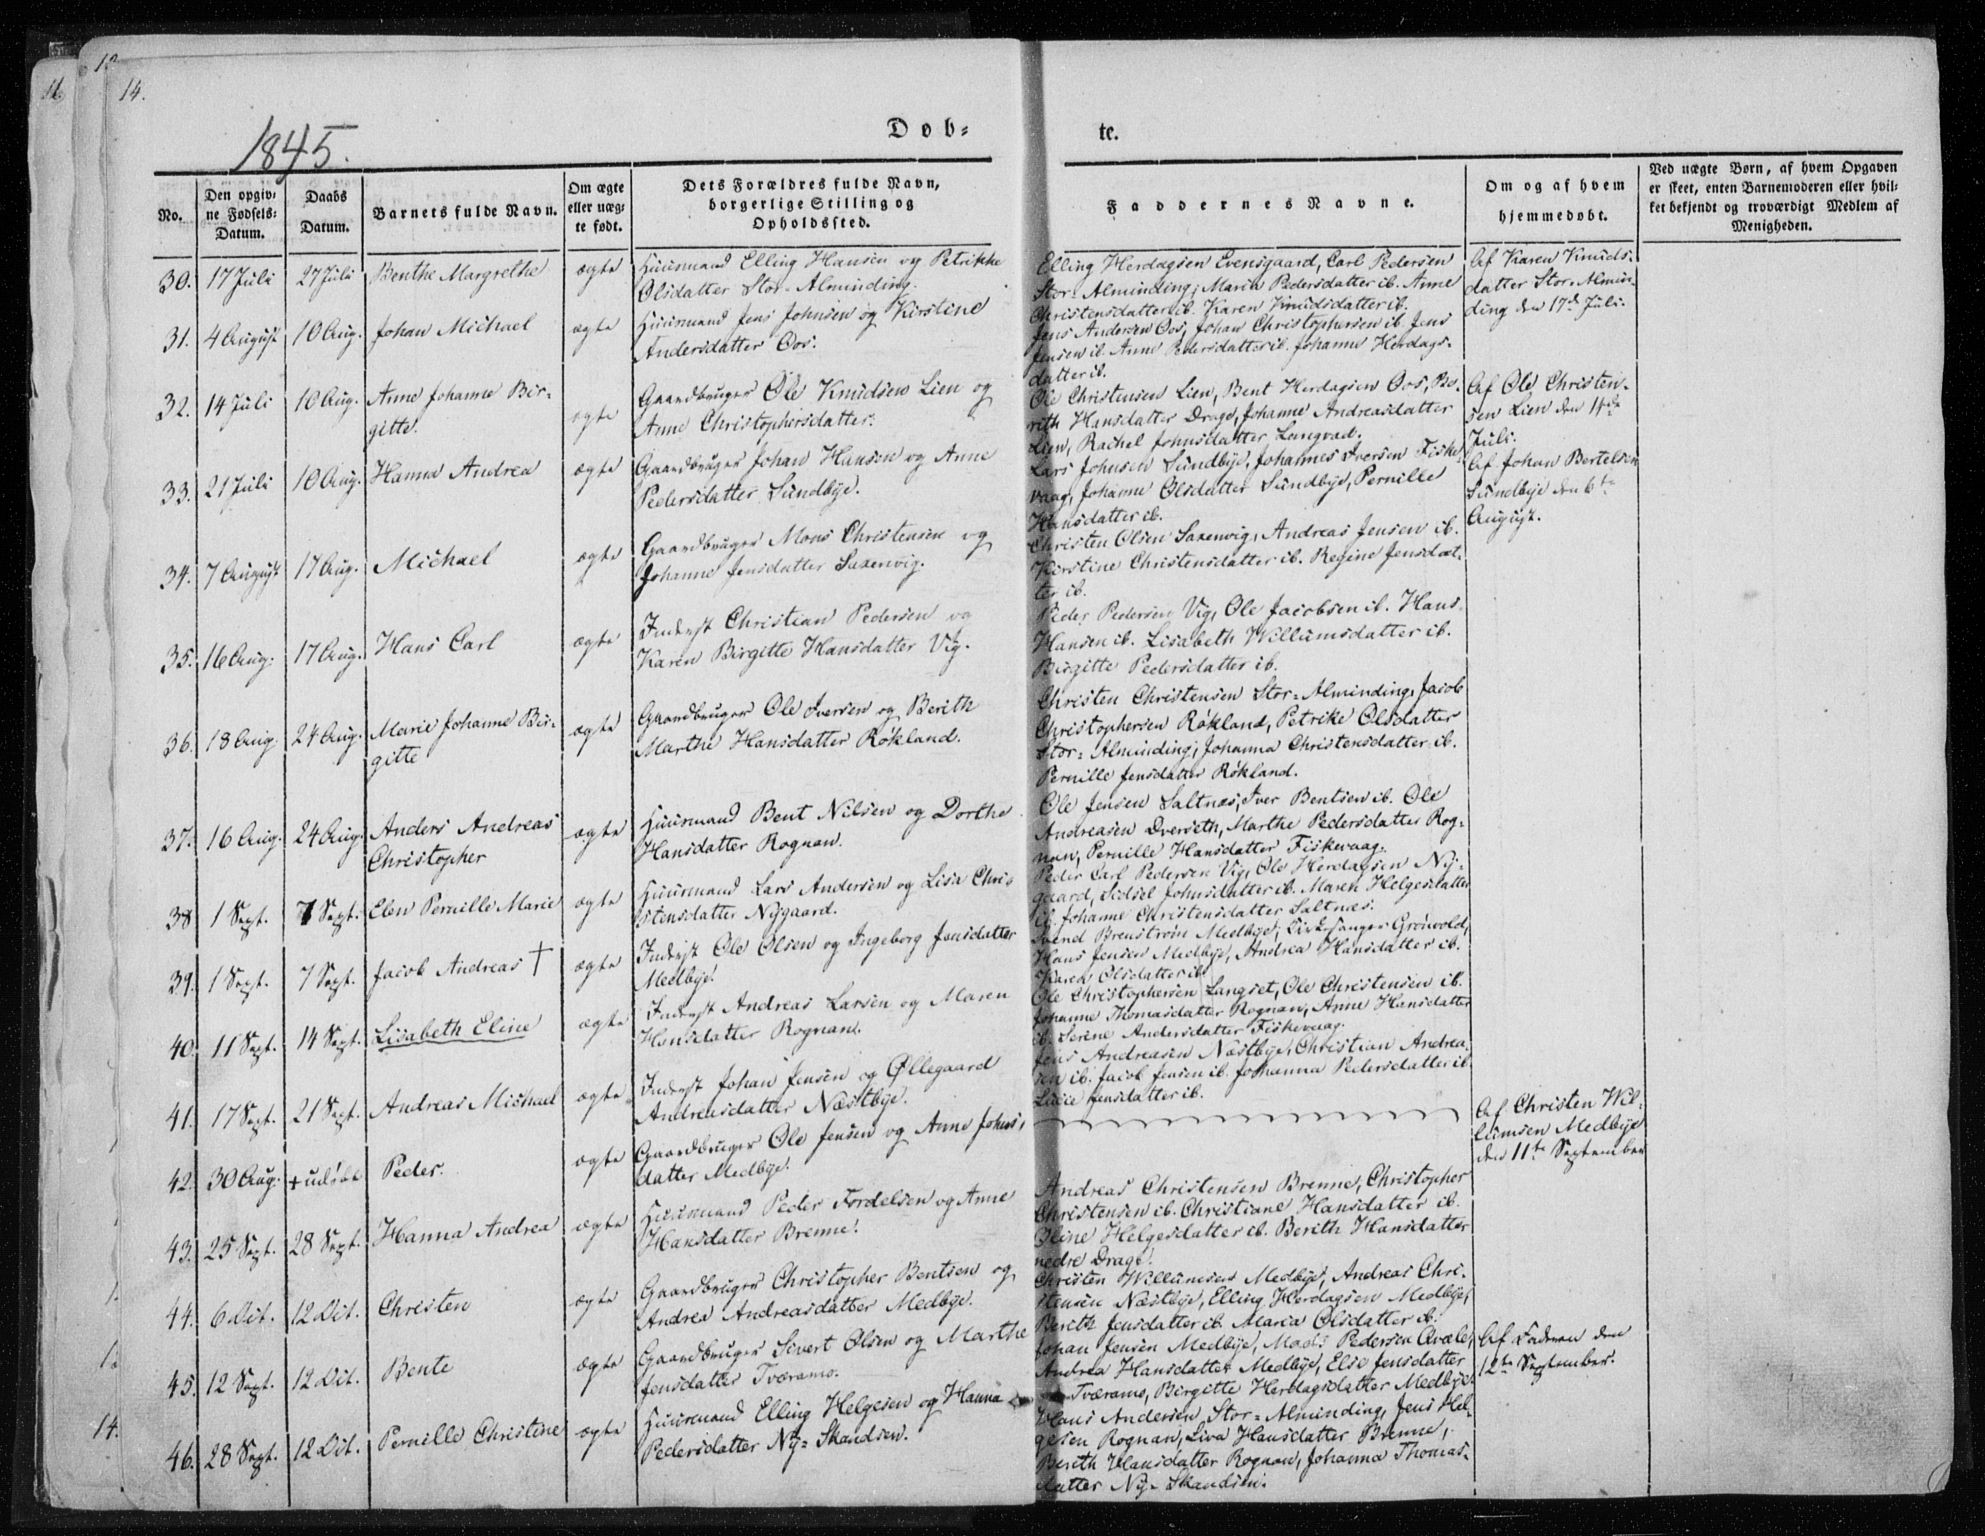 11.
12
14.
1845.
Døb=
te.
No.
Den opgiv=
ne Fødsels=
Datum.
Daabs
Datum.
Barnets fulde Navn.
Om ægte
eller uæg=
te født.
Dets Forældres fulde Navn,
borgerlige Stilling og
Opholdssted.
Faddernes Navne.
Om og af hvem
hjemmedøbt.
Ved uægte Børn, af hvem Opgaven
er skeet, enten Barnemoderen eller hvil=
ket bekjendt og troværdigt Medlem af
Menigheden.
30. 17 Juli 27 Juli Benthe Margrethe ægte
Huusmand Elling Hansen og Petrikke
Olsdatter Stor-Alminding.
Elling Herdagsen Evensgaard, Carl Pedersen
Stor-Alminding, Maria Pedersdatter ib. Anne
Christensdatter ib. Karen Knudsdatter ib.
Af Karen Knuds-
datter Stor-Almin-
ding den 17de Juli.
31. 4 August 10 Aug. Johan Michael ægte
Huusmand Jens Johnsen og Kirstine
Andersdatter Oos.
Jens Andersen Oos, Johan Christophersen ib. Jens
Jensen ib. Anne Pedersdatter ib. Johanne Herdags-
datter ib.
32. 14 Juli 10 Aug. Anne Johanne Bir-
gitte. ægte
Gaardbruger Ole Knudsen Lien og
Anne Christophersdatter.
Ole Christensen Lien, Bent Herdagsen Oos, Be-
rith Hansdatter Drage, Johanne Andreasdatter
Lien, Rachel Johnsdatter Langvad.
Af Ole Christen-
sen Lien den 14de
Juli.
33. 21 Juli 10 Aug. Hanna Andrea ægte
Gaardbruger Johan Hansen og Anne
Pedersdatter Sundbye.
Lars Johnsen Sundbye, Johannes Iversen Fiske
vaag, Johanne Olsdatter Sundbye, Pernille
Hansdatter ib.
Af Johan Bertelsen
Sundbye den 6te
August.
34. 7 August 17 Aug. Michael ægte
Gaardbruger Mons Christensen og
Johanne Jensdatter Saxenvig.
Christen Olsen Saxenvig, Andreas Jensen ib.
Kirstine Christensdatter ib. Regine Jensdat-
ter ib.
35. 16 Aug. 17 Aug. Hans Carl ægte
Inderst Christian Pedersen og
Karen Birgitte Hansdatter Vig.
Peder Pedersen Vig, Ole Jacobsen ib. Hans
Hansen ib. Lisabeth Willumsdatter ib.
Birgitte Pedersdatter ib.
36. 18 Aug. 24 Aug. Marie Johanne Bir-
gitte ægte
Gaardbruger Ole Iversen og Berith
Marthe Hansdatter Røkland.
Christen Christensen Stor-Alminding, Jacob
Christophersen Røkland, Petrike Olsdatter
Stor-Alminding, Johanna Christensdatter ib.
Pernille Jensdatter Røkland.
37. 16 Aug. 24 Aug. Anders Andreas
Christopher ægte
Huusmand Bent Nilsen og Dorthe
Hansdatter Rognan.
Ole Jensen Saltnæs, Iver Bentsen ib. Ole
Andreasen Dverseth, Marthe Pedersdatter Rog-
nan, Pernille Hansdatter Fiskevaag.
38 1 Sept. 7 Sept. Elen Pernille Marie ægte
Huusmand Lars Andersen og Lisa Chri-
stensdatter Nygaard.
Peder Carl Pedersen Vig, Ole Herdagsen Ny-
gaard, Sidsel Johnsdatter ib. Maren Helgesdatter
ib. Johanne Christensdatter Saltnæs.
39. 1 Sept. 7 Sept. Jacob Andreas † ægte
Inderst Ole Olsen og Ingeborg Jensdatter
Medbye.
Svend Brenstrøm Medbye, Kirkesanger Grønvold,
Hans Jensen Medbye, Andrea Hansdatter ib.
Karen Olsdatter ib.
40. 11 Sept. 14 Sept. Lisabeth Eline ægte
Inderst Andreas Larsen og Maren
Hansdatter Rognan.
Ole Christophersen Langset, Ole Christensen ib.
Johanne Thomasdatter Rognan, Anne Hansdatter
ib. Serine Andersdatter Fiskevaag.
41. 17 Sept. 21 Sept. Andreas Michael ægte
Inderst Johan Jensen og Øllegaard
Andreasdatter Næstbye.
Jens Andreasen Næstbye, Christian Andrea-
sen ib. Jacob Jensen ib. Johanna Pedersdatter ib.
Lucie Jensdatter ib.
42. 30 Aug. + udøbt Peder. ægte
Gaardbruger Ole Jensen og Anne Johns-
datter Medbye.
Af Christen Wil-
lumsen Medbye
den 11te September
43. 25 Sept. 28 Sept. Hanna Andrea ægte
Huusmand Peder Tordelsen og Anne
Hansdatter Brenne.
Andreas Christensen Brenne, Christopher
Christensen ib. Christiane Hansdatter ib.
Oline Helgesdatter ib. Berith Hansdatter
nedre Drage.
44. 6 Oct. 12 Oct. Christen ægte
Gaardbruger Christopher Bentsen og
Andrea Andreasdatter Medbye.
Christen Willumsen Medbye, Andreas Chri-
stensen Næstbye, Elling Herdagsen Medbye,
Berith Jensdatter ib. Maria Olsdatter ib.
45. 12 Sept. 12 Oct. Bente ægte
Gaardbruger Sivert Olsen og Marthe
Jensdatter Tværamo.
Johan Jensen Medbye, Mads Pedersen Qvæle,
Andrea Hansdatter Medbye, Else Jensdatter
Tværamo, Birgitte Herdagsdatter Medbye.
Af Faderen den
12te September.
46. 28 Sept. 12 Oct. Pernille Christine ægte
Huusmand Elling Helgesen og Hanna
Pedersdatter Ny-Skandsen.
Hans Andersen Stor-Alminding, Jens Hel-
gesen Rognan, Liva Hansdatter Brenne,
Berith Hansdatter Rognan, Johanna Thomas-
datter Ny-Skandsen.
1.
1.
14.